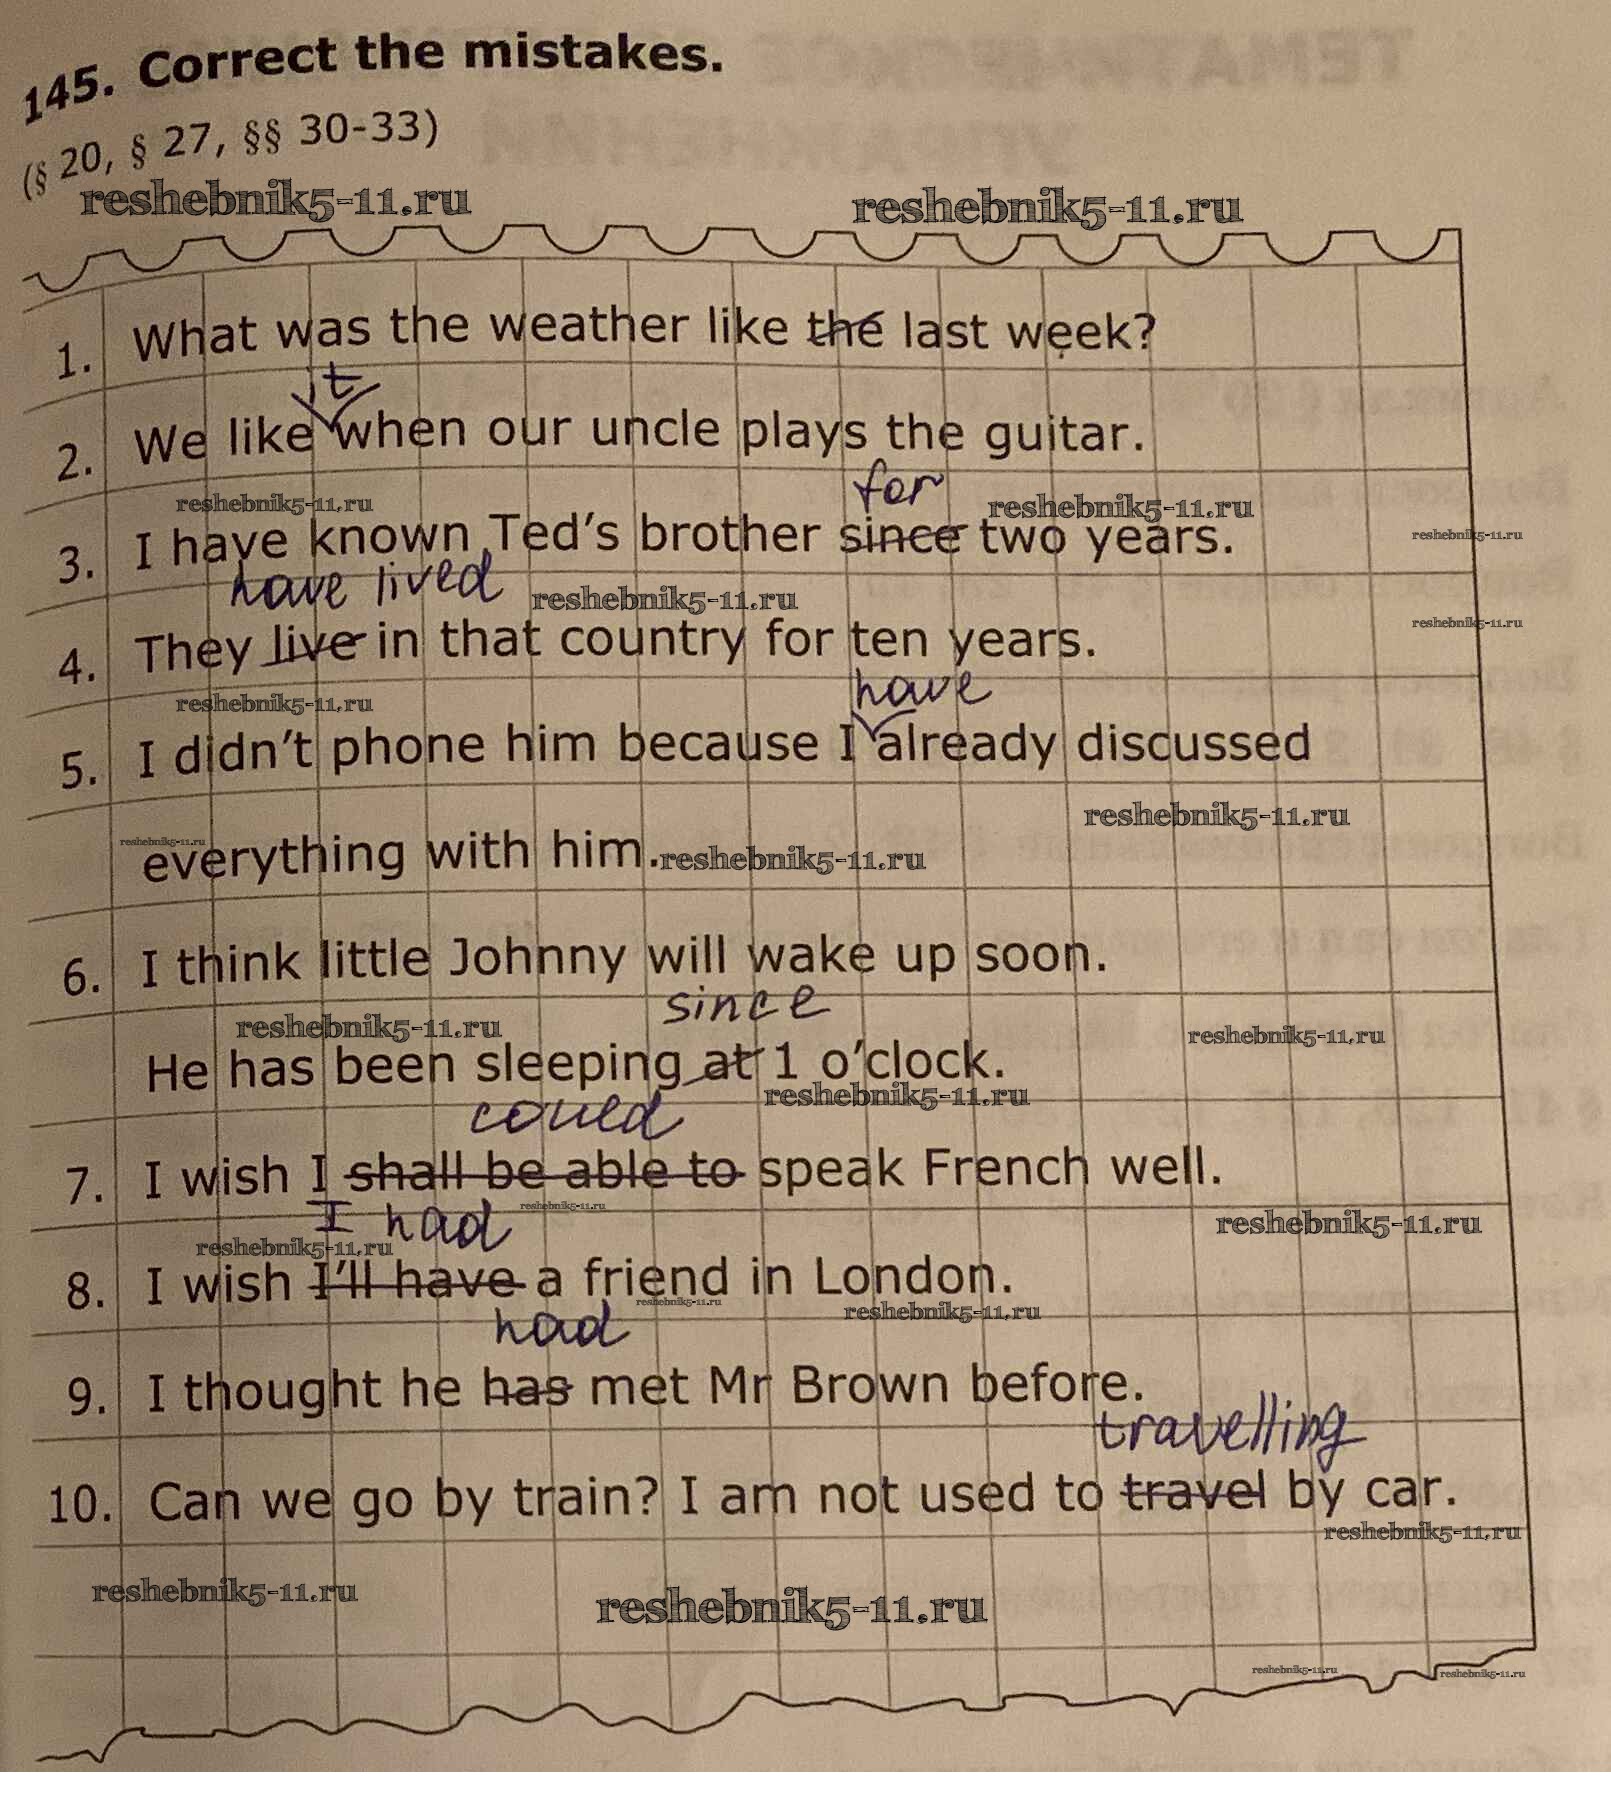 145. Correct the mistakes.
(§ 20, § 27, §§ 30-33)
reshebnik5-11.ru reshebnik5-11.ru
1. What was the weather like the last week?
it
2. We like when our uncle plays the guitar.
for
reshebnik5-11.ru reshebnik5-11.ru
3. I have known Ted's brother since two years.
reshebnik5-11.ru
have lived reshebnik5-11.ru
reshebnik5-11.ru
4. They live in that country for ten years.
reshebnik5-11.ru have
5. I didn't phone him because I already discussed
reshebnik5-11.ru
reshebnik5-11.ru
everything with him. reshebnik5-11.ru
6. I think little Johnny will wake up soon.
since
reshebnik5-11.ru reshebnik5-11.ru
He has been sleeping at 1 o'clock.
reshebnik5-11.ru
could
7. I wish I shall be able to speak French well.
reshebnik5-11.ru
I had reshebnik5-11.ru
reshebnik5-11.ru
8. I wish I'll have a friend in London.
reshebnik5-11.ru reshebnik5-11.ru
had
9. I thought he has met Mr Brown before.
travelling
10. Can we go by train? I am not used to travel by car.
reshebnik5-11.ru
reshebnik5-11.ru reshebnik5-11.ru
reshebnik5-11.ru reshebnik5-11.ru